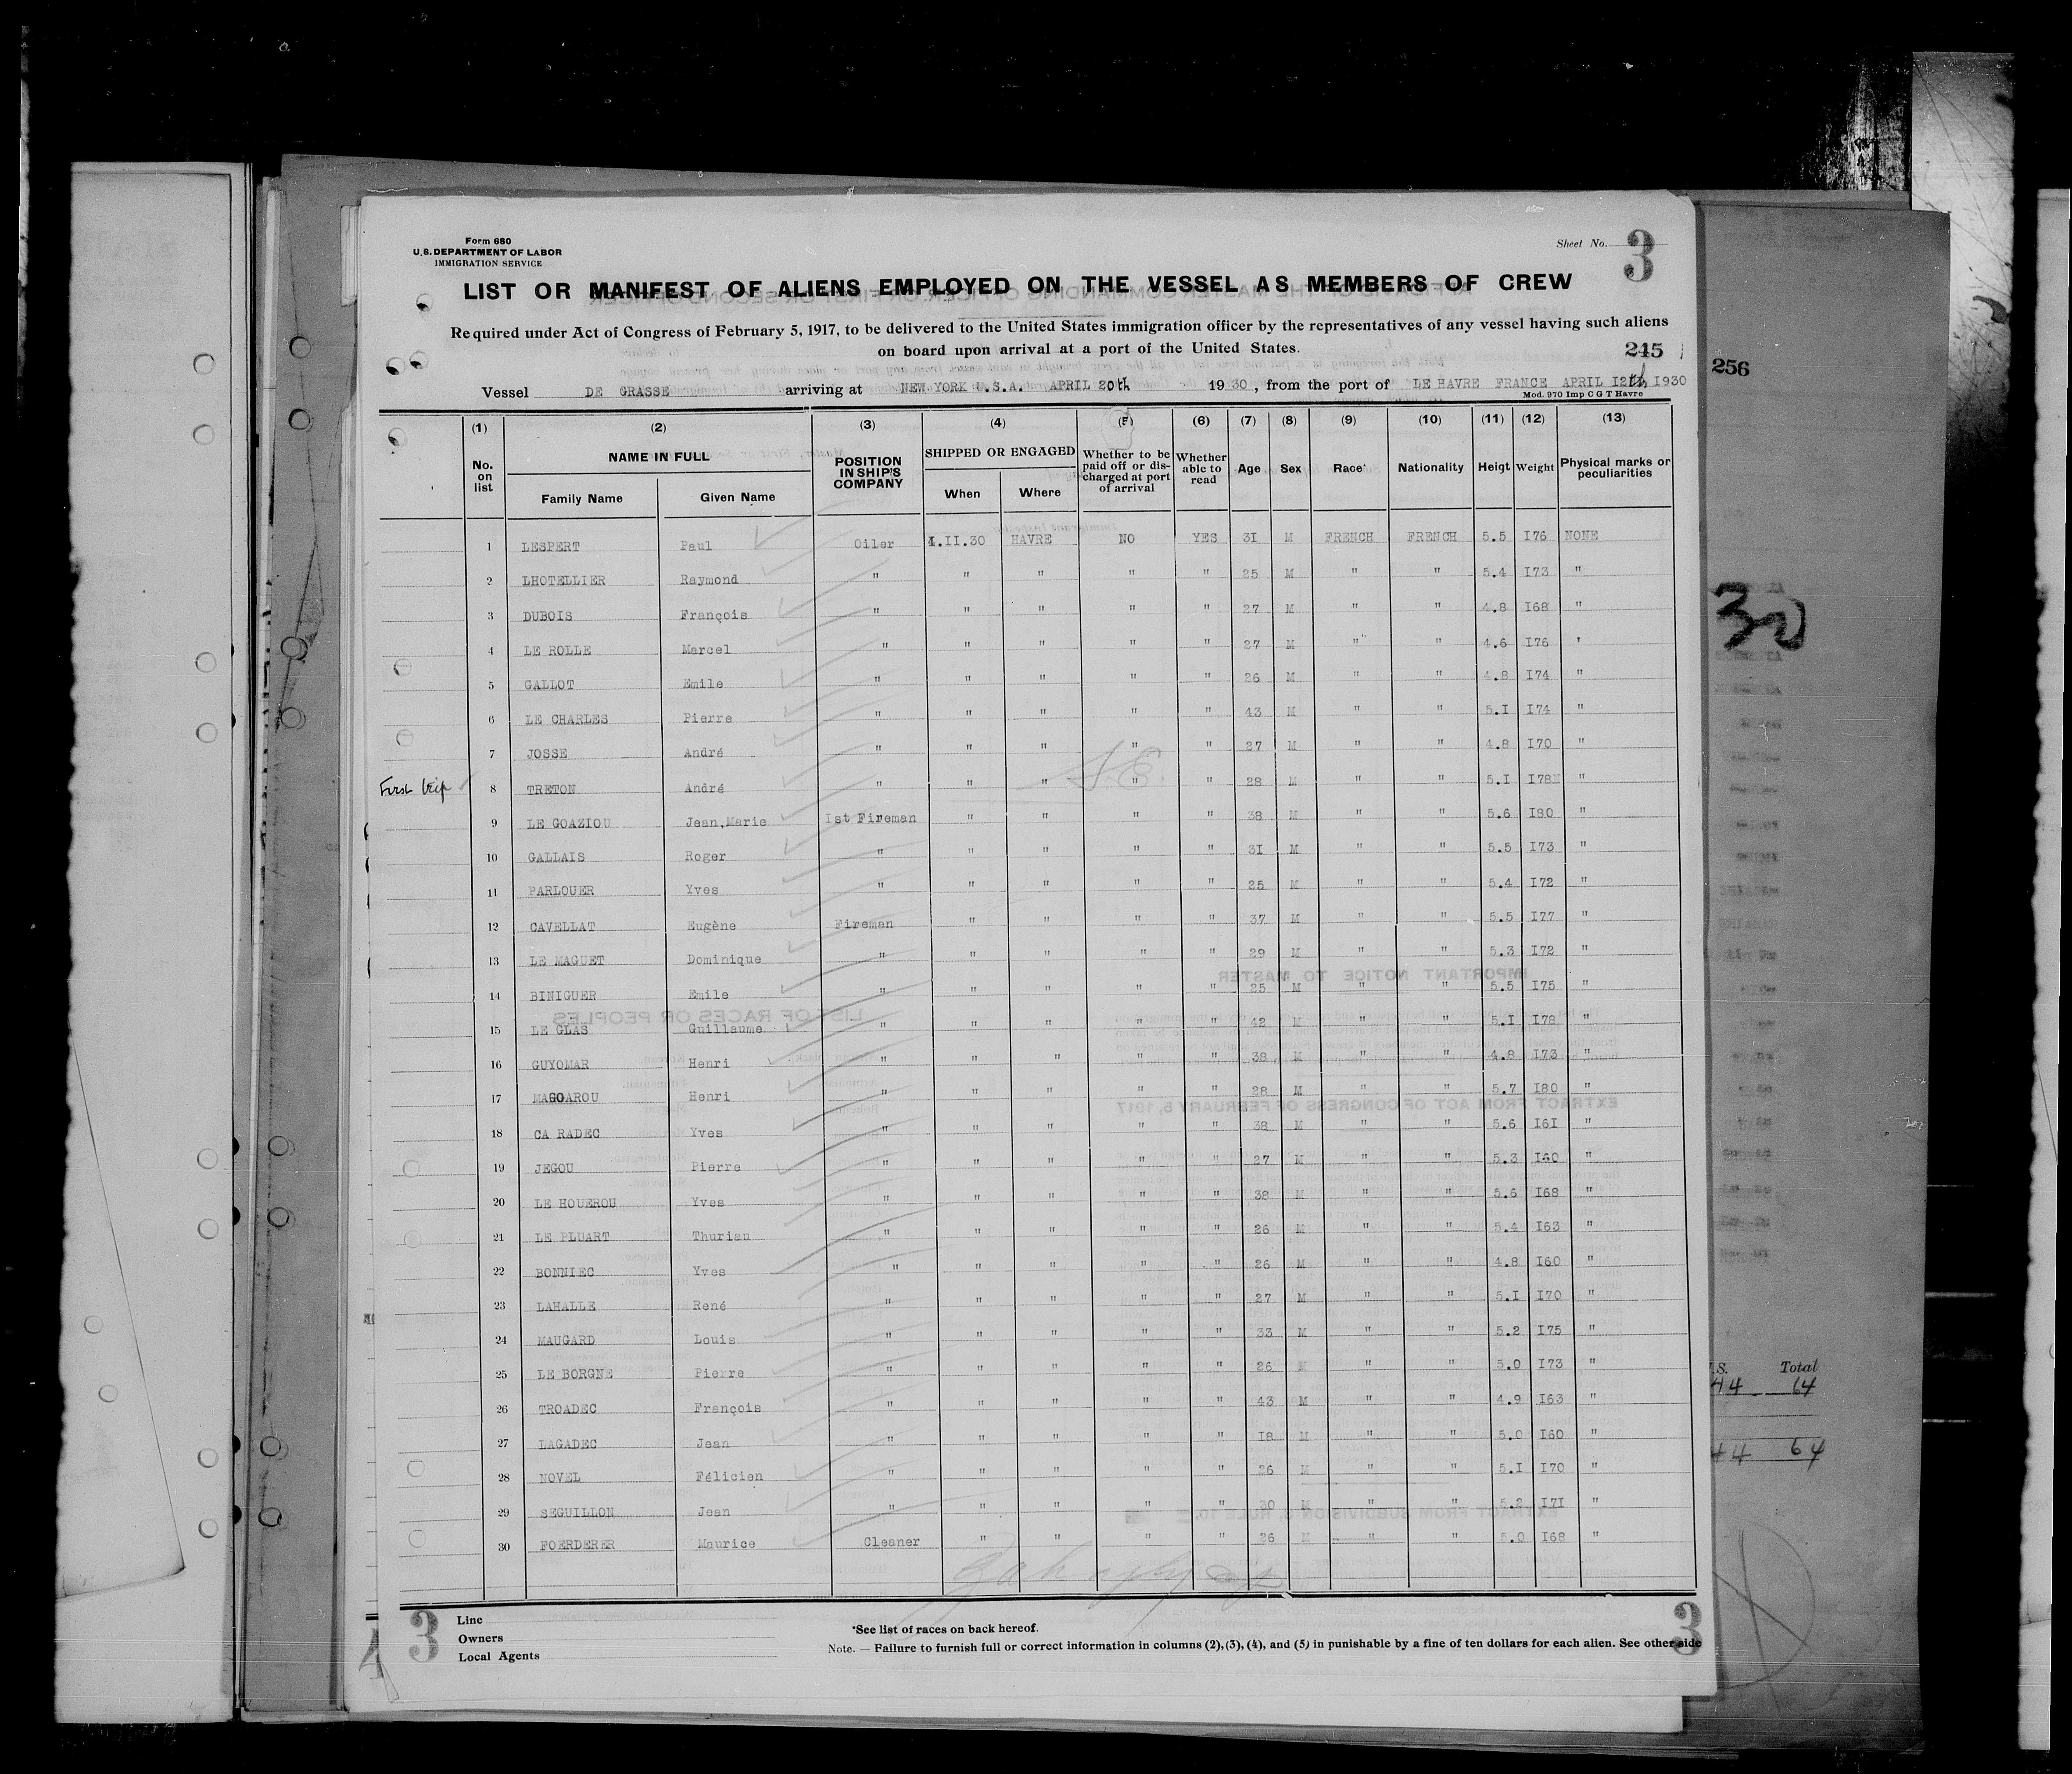 Form 680
U.S. DEPARTMENT OF LABOR
IMMIGRATION SERVICE
Sheet No. 3
LIST OR MANIFEST OF ALIENS EMPLOYED ON THE VESSEL AS MEMBERS OF CREW
Required under Act of Congress of February 5, 1917, to be delivered to the United States immigration officer by the representatives of any vessel having such aliens
on board upon arrival at a port of the United States.
245
256
Vessel DE GRASSE arriving at NEW YORK U.S.A. APRIL 20th 1930, from the port of LE HAVRE FRANCE APRIL I2th I930
Mod. 970 Imp C G T Havre
(1) (2) (3) (4) (5) (6) (7) (8) (9) (10) (11) (12) (13)
No. on list NAME IN FULL Family Name Given Name POSITION IN SHIP'S COMPANY SHIPPED OR ENGAGED When Where Whether to be paid off or discharged at port of arrival Whether able to read Age Sex Race* Nationality Heigt Weight Physical marks or peculiarities
1 LESPERT Paul Oiler 4.II.30 HAVRE NO YES 3I M FRENCH FRENCH 5.5 I76 NONE
2 LHOTELLIER Raymond " " " " " 25 M " " 5.4 I73 "
3 DUBOIS François " " " " " 27 M " " 4.8 I68 "
4 LE ROLLE Marcel " " " " " 27 M " " 4.6 I76 '
5 GALLOT Emile " " " " " 26 M " " 4.8 I74 "
6 LE CHARLES Pierre " " " " " 43 M " " 5.I I74 "
7 JOSSE André " " " " " 27 M " " 4.8 I70 "
First trip 8 TRETON André " " " " " 28 M " " 5.I I78 "
9 LE GOAZIOU Jean,Marie Ist Fireman " " " " 38 M " " 5.6 I80 "
10 GALLAIS Roger " " " " " 3I M " " 5.5 I73 "
11 PARLOUER Yves " " " " " 25 M " " 5.4 I72 "
12 CAVELLAT Eugène Fireman " " " " 37 M " " 5.5 I77 "
13 LE MAGUET Dominique " " " " " 29 M " " 5.3 I72 "
14 BINIGUER Emile " " " " " 25 M " " 5.5 I75 "
15 LE GLAS Guillaume " " " " " 42 M " " 5.I I78 "
16 GUYOMAR Henri " " " " " 38 M " " 4.8 I73 "
17 MAGOAROU Henri " " " " " 28 M " " 5.7 I80 "
18 CA RADEC Yves " " " " " 38 M " " 5.6 I6I "
19 JEGOU Pierre " " " " " 27 M " " 5.3 I60 "
20 LE HOUEROU Yves " " " " " 38 M " " 5.6 I68 "
21 LE PLUART Thuriau " " " " " 26 M " " 5.4 I63 "
22 BONNIEC Yves " " " " " 26 M " " 4.8 I60 "
23 LAHALLE René " " " " " 27 M " " 5.I I70 "
24 MAUGARD Louis " " " " " 33 M " " 5.2 I75 "
25 LE BORGNE Pierre " " " " " 26 M " " 5.0 I73 "
26 TROADEC François " " " " " 43 M " " 4.9 I63 "
27 LAGADEC Jean " " " " " I8 M " " 5.0 I60 "
28 NOVEL Félicien " " " " " 26 M " " 5.I I70 "
29 SEGUILLON Jean " " " " " 30 M " " 5.2 I7I "
30 FOERDERER Maurice Cleaner " " " " 26 M " " 5.0 I68 "
30
Total
44 64
44 64
3
Line
Owners
Local Agents
*See list of races on back hereof.
Note. — Failure to furnish full or correct information in columns (2), (3), (4), and (5) in punishable by a fine of ten dollars for each alien. See other side
3